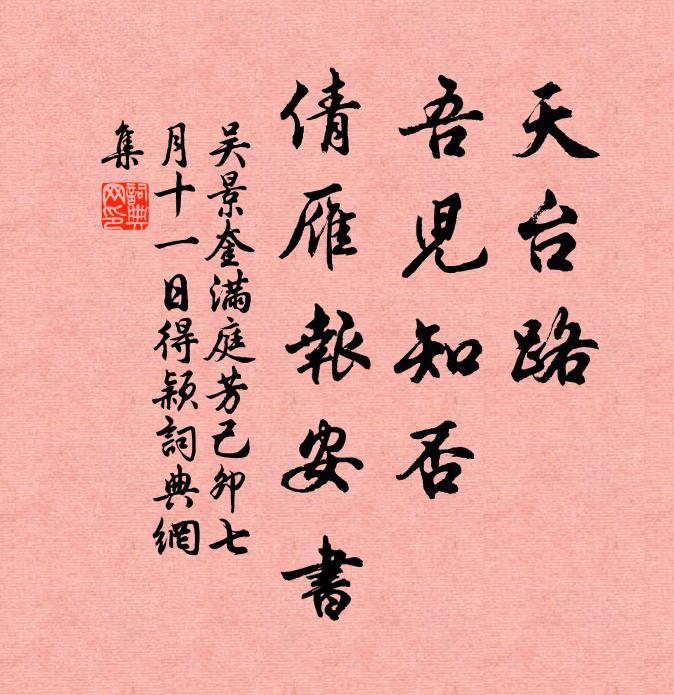 天台路
吾児知否
倩雁報安書
吴景奎滿庭芳己卯七
月十一日得穎詞典網
集
詞典
网印